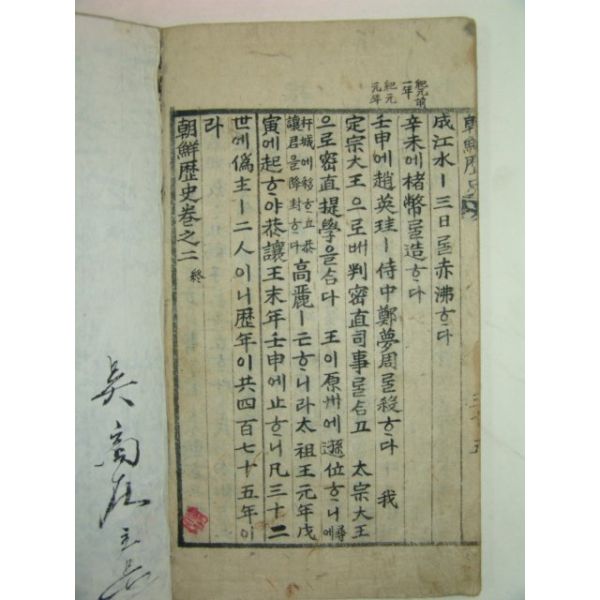 朝鮮歷史
紀元前一年
紀元元年
成江水ㅣ三日을赤沸ᄒᆞ다
辛未에楮幣를造ᄒᆞ다
壬申에趙英珪ㅣ侍中鄭夢周를殺ᄒᆞ다 我
定宗大王으로배判密直司事를삼고 太宗大王
으로密直提學을삼다 王이原州에遜位ᄒᆞ니尋에
杆城에移ᄒᆞ고恭讓君을降封ᄒᆞ다 高麗ㅣ亡ᄒᆞ니라太祖王元年戊
寅에起ᄒᆞ야恭讓王末年壬申에止ᄒᆞ니凡三十二
世에僞主ㅣ二人이니歷年이共四百七十五年이
라
朝鮮歷史卷之二 終